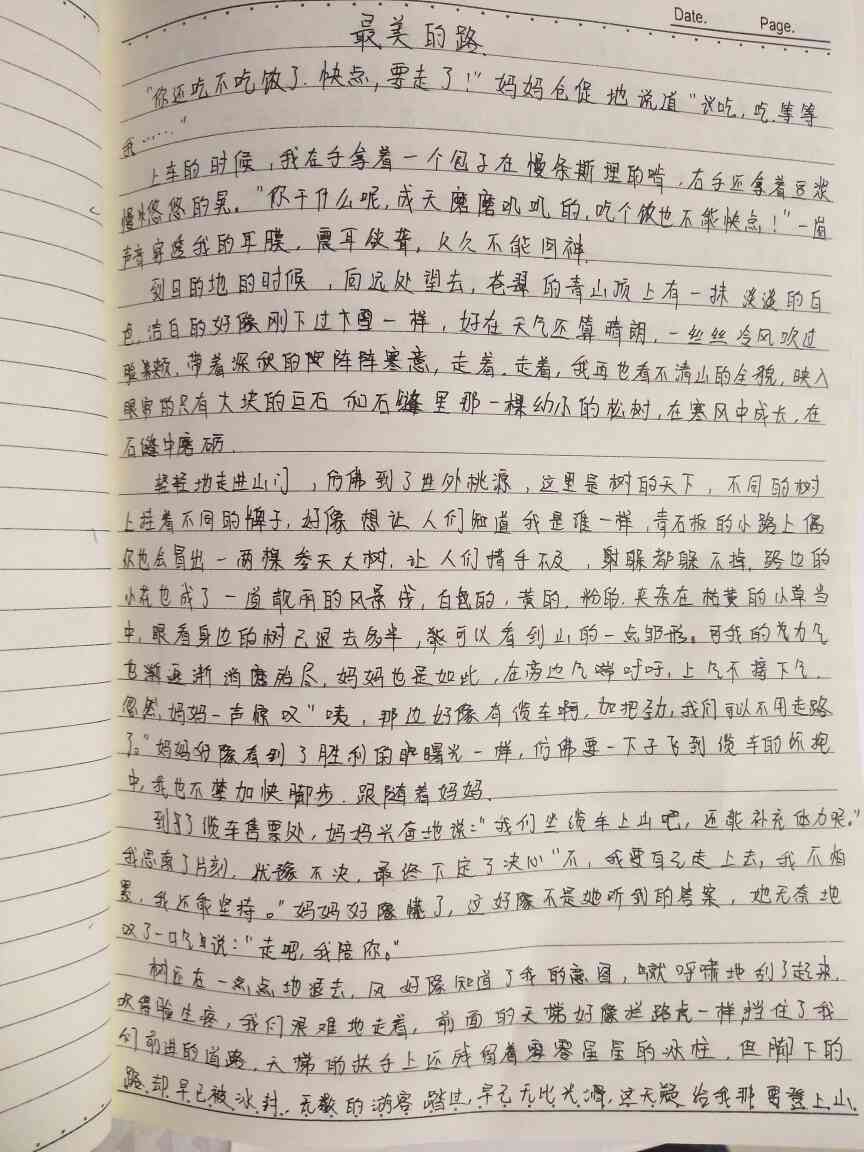 Date.
Page.
最美的路.
"你还吃不吃饭了.快点,要走了!"妈妈仓促地说道"议吃,吃.等等
我……"
上车的时候,我左手拿着一个包子在慢条斯理的啃,右手还拿着豆浆
慢悠悠的晃。"你干什么呢,成天磨磨叽叽的,吃个饭也不能快点!"一道
声音穿透我的耳膜,震耳欲聋,久久不能回神.
到目的地的时候,向远处望去,苍翠的青山顶上有一抹淡淡的白
色,洁白的好像刚下过大雪一样,好在天气还算晴朗,一丝丝冷风吹过
脸颊,带着深秋的阵阵寒意,走着.走着,我再也看不清山的全貌,映入
眼帘的只有大块的巨石和石缝里那一棵幼小的松树,在寒风中成长,在
石缝中磨砺.
轻轻地走进山门,仿佛到了世外桃源,这里是树的天下,不同的树
上挂着不同的牌子,好像想让人们知道我是谁一样,青石板的小路上偶
尔也会冒出一两棵参天大树.让人们措手不及,躲都躲不掉.路边的
小花也成了一道靓丽的风景线,白色的,黄的.粉的.夹杂在枯黄的小草当
中,眼看身边的树已退去多半,就可以看到山的一点邹形.可我的力气
也逐渐消磨殆尽,妈妈也是如此,在旁边气喘吁吁,上气不接下气.
忽然,妈妈一声惊叹"咦,那边好像有缆车啊,加把劲,我们可以不用走路
了。"妈妈好像看到了胜利的曙光一样,仿佛要一下子飞到缆车的怀抱
中,我也不禁加快脚步.跟随着妈妈.
到了缆车售票处,妈妈兴奋地说:"我们坐缆车上山吧,还能补充体力呢。"
我思离了片刻,犹豫不决,最终下定了决心"不,我要自己走上去,我不怕
累,我还能坚持。"妈妈好像愣了,这好像不是她听到的答案,她无奈地
叹了一口气说:"走吧,我陪你。"
树还在一点点地退去,风好像知道了我的意图,呼啸地刮了起来.
吹得脸生疼,我们艰难地走着,前面的天梯好像拦路虎一样,挡住了我
们前进的道路.天梯的扶手上还残留着零零星星的冰柱,但脚下的
路.却早已被冰封.无数的游客踏过,早已无比光滑,这无疑给我那要登上山